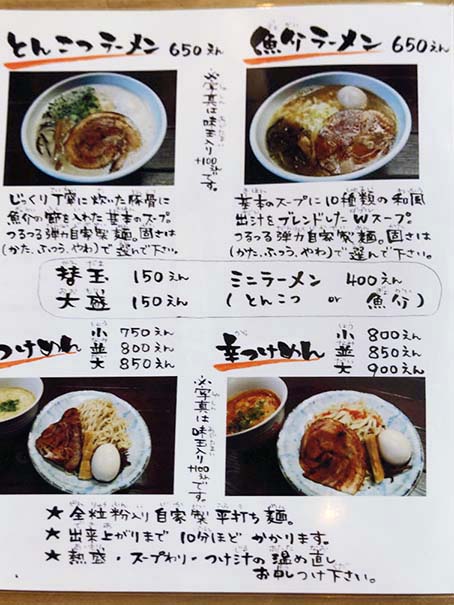 とんこつラーメン 650えん
魚介ラーメン 650えん
※写真は味玉入り+100えんです。
じっくり丁寧に炊いた豚骨に
魚介の節を入れた基本のスープ
つるつる弾力自家製麺。固さは
(かた、ふつう、やわ)で選んで下さい。
基本のスープに10種類の和風
出汁をブレンドしたWスープ
つるつる弾力自家製麺。固さは
(かた、ふつう、やわ)で選んで下さい。
替玉 150えん
大盛 150えん
ミニラーメン 400えん
(とんこつ or 魚介)
つけめん
小 750えん
並 800えん
大 850えん
辛つけめん
小 800えん
並 850えん
大 900えん
※写真は味玉入り+100えんです。
★ 全粒粉入り自家製平打ち麺。
★ 出来上がりまで10分ほどかかります。
★ 熱盛・スープわり・つけ汁の温め直し
お申しつけ下さい。